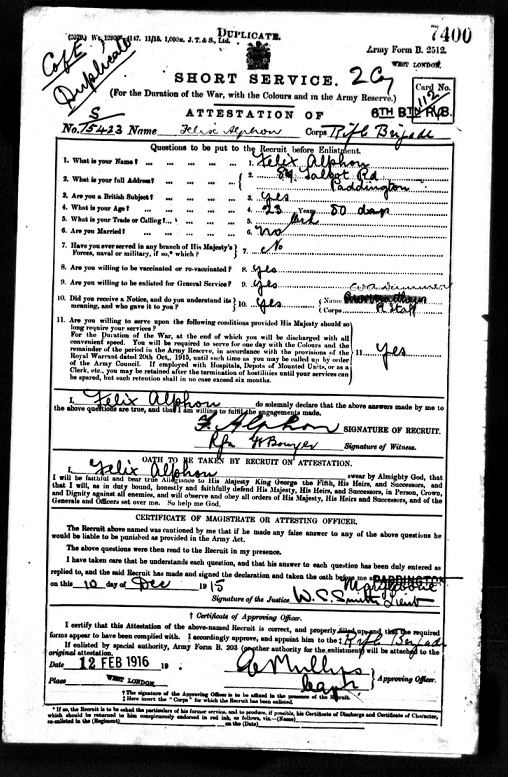 DUPLICATE.
7400
11/15. 1,000M. J. T. & S., Ltd.
Army Form B. 2512.
Copy
Duplicate
WEST LONDON
SHORT SERVICE.
2 Coy
(For the Duration of the War, with the Colours and in the Army Reserve.)
Card No.
112
ATTESTATION OF
6TH BTN R/B.
No. S/15423 Name Felix Alphon Corps Rifle Brigade
Questions to be put to the Recruit before Enlistment.
1. What is your Name? ... ... ... ... 1. Felix Alphon
2. What is your full Address? ... ... ... 2. 89 Talbot Rd
Paddington
3. Are you a British Subject? ... ... ... 3. Yes
4. What is your Age? ... ... ... ... 4. 23 Years 50 days
5. What is your Trade or Calling? ... ... ... 5. Clerk
6. Are you Married? ... ... ... ... 6. No
7. Have you ever served in any branch of His Majesty's
Forces, naval or military, if so,* which? 7. No
8. Are you willing to be vaccinated or re-vaccinated? 8. Yes
9. Are you willing to be enlisted for General Service? 9. Yes
10. Did you receive a Notice, and do you understand its
meaning, and who gave it to you? 10. Yes Name
Corps R. Staff
11. Are you willing to serve upon the following conditions provided His Majesty should so
long require your services?
For the Duration of the War, at the end of which you will be discharged with all
convenient speed. You will be required to serve for one day with the Colours and the
remainder of the period in the Army Reserve, in accordance with the provisions of the
Royal Warrant dated 20th Oct., 1915, until such time as you may be called up by order
of the Army Council. If employed with Hospitals, Depots of Mounted Units, or as a
Clerk, etc., you may be retained after the termination of hostilities until your services can
be spared, but such retention shall in no case exceed six months.
11. Yes
I, Felix Alphon do solemnly declare that the above answers made by me to
the above questions are true, and that I am willing to fulfil the engagements made.
F. Alphon SIGNATURE OF RECRUIT.
Rfn Signature of Witness.
OATH TO BE TAKEN BY RECRUIT ON ATTESTATION.
I, Felix Alphon swear by Almighty God, that
I will be faithful and bear true Allegiance to His Majesty King George the Fifth, His Heirs, and Successors, and
that I will, as in duty bound, honestly and faithfully defend His Majesty, His Heirs, and Successors, in Person, Crown,
and Dignity against all enemies, and will observe and obey all orders of His Majesty, His Heirs and Successors, and of the
Generals and Officers set over me. So help me God.
CERTIFICATE OF MAGISTRATE OR ATTESTING OFFICER.
The Recruit above named was cautioned by me that if he made any false answer to any of the above questions he
would be liable to be punished as provided in the Army Act.
The above questions were then read to the Recruit in my presence.
I have taken care that he understands each question, and that his answer to each question has been duly entered as
replied to, and the said Recruit has made and signed the declaration and taken the oath before me at PADDINGTON
Marylebone
on this 10 day of Dec 1915
Signature of the Justice W. C. Smith Lieut
† Certificate of Approving Officer.
I certify that this Attestation of the above-named Recruit is correct, and properly filled up, and that the required
forms appear to have been complied with. I accordingly approve, and appoint him to the ‡ Rifle Brigade
If enlisted by special authority, Army Form B. 203 (or other authority for the enlistment) will be attached to the
original attestation.
Date 12 FEB 1916 19
Capt
Approving Officer.
Place WEST LONDON
† The signature of the Approving Officer is to be affixed in the presence of the Recruit.
‡ Here insert the "Corps" for which the Recruit has been enlisted.
* If so, the Recruit is to be asked the particulars of his former service, and to produce, if possible, his Certificate of Discharge and Certificate of Character,
which should be returned to him conspicuously endorsed in red ink, as follows, viz.:—(Name)
re-enlisted in the (Regiment) on the (Date).